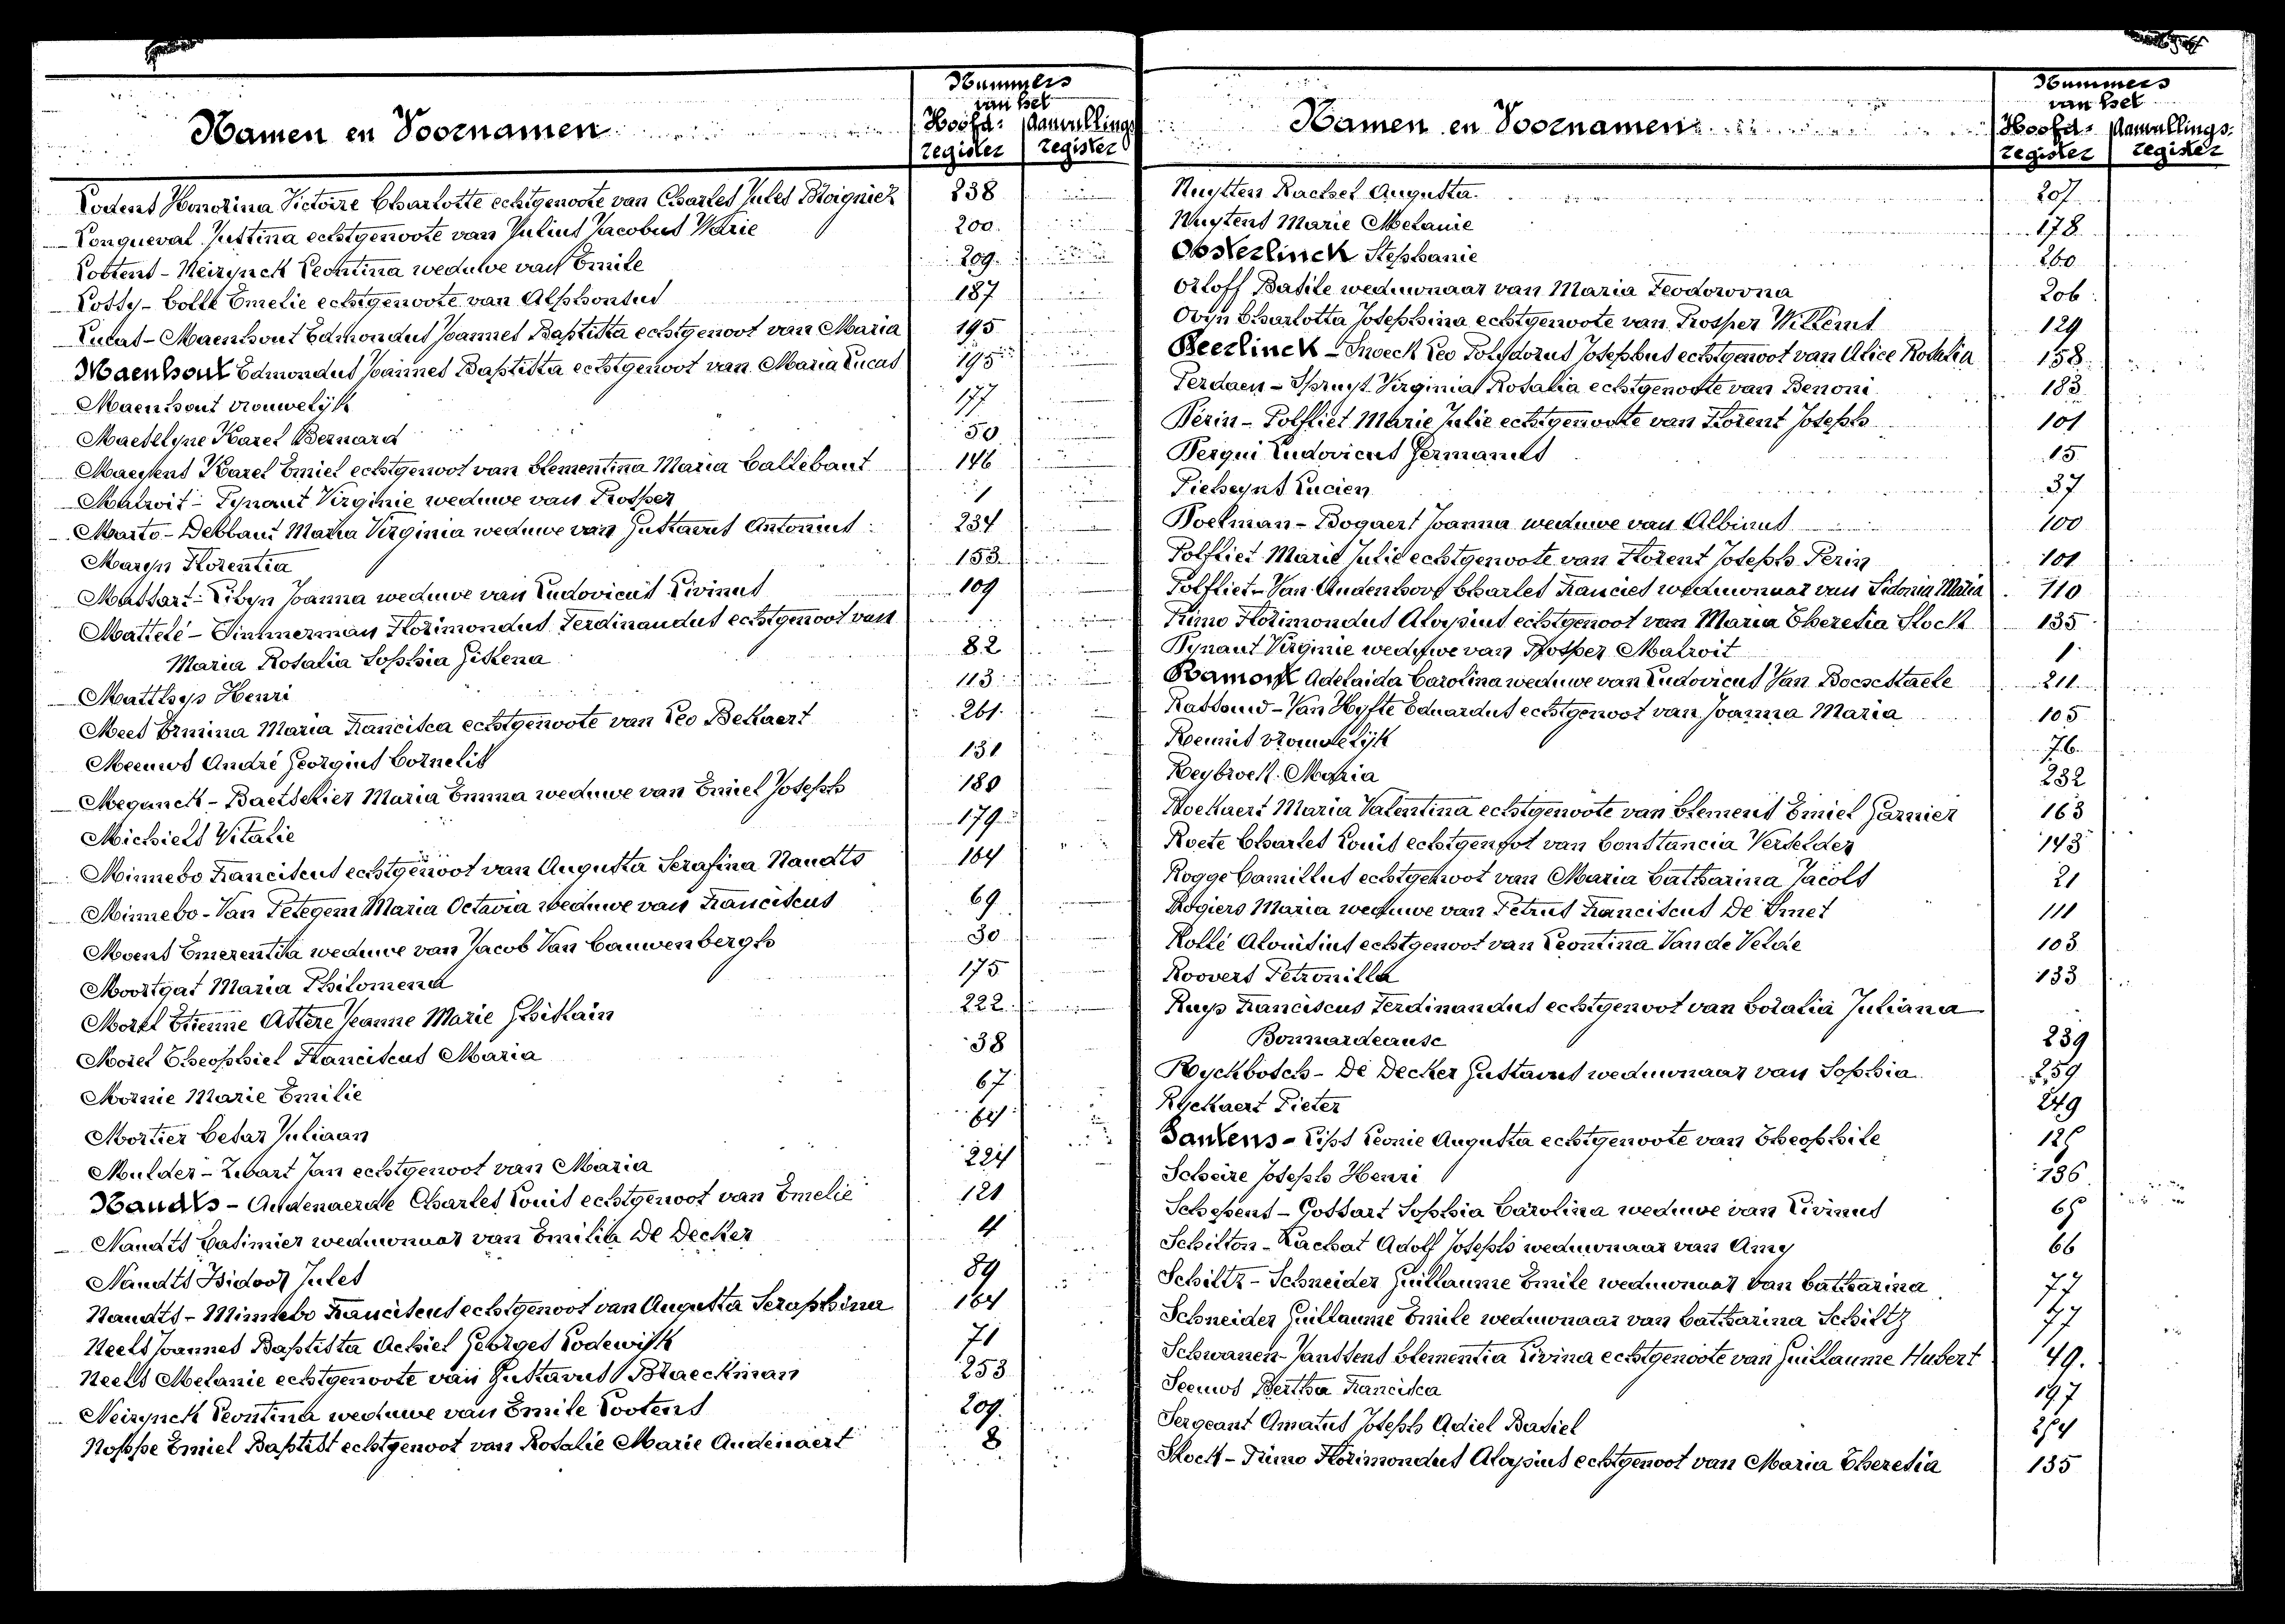 Namen en Voornamen
Nummers
van het
Hoofd-register
Aanvullings register
Lodens Honorina Victoire Charlotte echtgenoote van Charles Jules Bloignier 238
Longueval Justina echtgenoote van Julius Jacobus Warie 200
Lootens - Neirynck Leontina weduwe van Emile 209
Lossy - Colle Emelie echtgenoote van Alphonsus 187
Lucas - Maenhout Edmondus Joannes Baptista echtgenoot van Maria 195
Maenhout Edmondus Joannes Baptista echtgenoot van Maria Lucas 195
Maenhout vrouwelijk 177
Maeselyne Karel Bernard 50
Maeyens Karel Emiel echtgenoot van Clementina Maria Callebaut 146
Malvoit - Pynaut Virginie weduwe van Prosper 1
Maarto - Deblauw Maria Virginia weduwe van Gustavus Antonius 234
Maryn Florentia 153
Massart - Libyn Joanna weduwe van Ludovicus Livinus 109
Mattelé - Timmerman Florimondus Ferdinandus echtgenoot van
Maria Rosalia Sophia Gislena 82
Matthys Henri 113
Mees Ermina Maria Francisca echtgenoote van Leo Bekaert 261
Meeuws André Georgius Cornelis 131
Meganck - Baetselier Maria Emma weduwe van Emiel Joseph 180
Michiels Vitalie 179
Minnebo Franciscus echtgenoot van Augusta Serafina Naudts 164
Minnebo - Van Petegem Maria Octavia weduwe van Franciscus 69
Moens Emerentia weduwe van Jacob Van Cauwenbergh 30
Moortgat Maria Philomena 175
Morel Etienne Astere Jeanne Marie Ghislain 222
Morel Theophiel Franciscus Maria 38
Mornie Marie Emilie 67
Mortier Cesar Juliaan 64
Mulder - Zwart Jan echtgenoot van Maria 224
Naudts - Audenaerde Charles Louis echtgenoot van Emelie 121
Naudts Casimier weduwnaar van Emilia De Decker 4
Naudts Isidoor Jules 89
Naudts - Minnebo Franciscus echtgenoot van Augusta Seraphina 164
Neels Joannes Baptista Achiel Georges Lodewijk 71
Neels Melanie echtgenoote van Gustavus Blaeckman 253
Neirynck Leontina weduwe van Emile Lootens 209
Noppe Emiel Baptist echtgenoot van Rosalie Marie Audenaert 8
Namen en Voornamen
Nummers
van het
Hoofd-register
Aanvullings-register
Nuytten Rachel Augusta 207
Nuytens Marie Melanie 178
Oosterlinck Stephanie 260
Orloff Basile weduwnaar van Maria Feodorovna 206
Ovyn Charlotta Josephina echtgenoote van Prosper Willems 129
Peerlinck - Snoeck Leo Polydorus Josephus echtgenoot van Alice Rosalia 158
Perdaen - Spruyt Virginia Rosalia echtgenoote van Benoni 183
Perin - Polfliet Marie Julie echtgenoote van Florent Joseph 101
Perqui Ludovicus Germanus 15
Pieheyns Lucien 37
Poelman - Bogaert Joanna weduwe van Albinus 100
Polfliet Marie Julie echtgenoote van Florent Joseph Perin 101
Polfliet - Van Audenhove Charles Francies weduwnaar van Sidonia Maria 110
Primo Florimondus Aloysius echtgenoot van Maria Theresia Slock 135
Pynaut Virginie weduwe van Prosper Malvoit 1
Ramont Adelaida Carolina weduwe van Ludovicus Van Bocxstaele 211
Rassouw - Van Hyfte Eduardus echtgenoot van Joanna Maria 105
Roemis vrouwelijk 76
Reybroeck Maria 232
Roekaert Maria Valentina echtgenoote van Clement Emiel Garnier 163
Roete Charles Louis echtgenoot van Constancia Verselder 143
Rogge Camillus echtgenoot van Maria Catharina Jacobs 21
Rogiers Maria weduwe van Petrus Franciscus De Smet 111
Rollé Aloïsius echtgenoot van Leontina Van de Velde 103
Roovers Petronilla 133
Ruys Franciscus Ferdinandus echtgenoot van Coralia Juliana
Bonnardeause 239
Ryckbosch - De Decker Gustavus weduwnaar van Sophia 259
Ryckaert Pieter 249
Santens - Lips Leonie Augusta echtgenoote van Theophile 125
Scheire Joseph Henri 136
Schepens - Gossart Sophia Carolina weduwe van Livinus 65
Schilton - Rachat Adolf Joseph weduwnaar van Amy 66
Schiltz - Schneider Guillaume Emile weduwnaar van Catharina 77
Schneider Guillaume Emile weduwnaar van Catharina Schiltz 77
Schwanen - Janssens Clementia Livina echtgenoote van Guillaume Hubert 49.
Seeuws Bertha Francisca 197
Sergeant Amatus Joseph Adiel Basiel 254
Slock - Primo Florimondus Aloysius echtgenoot van Maria Theresia 135